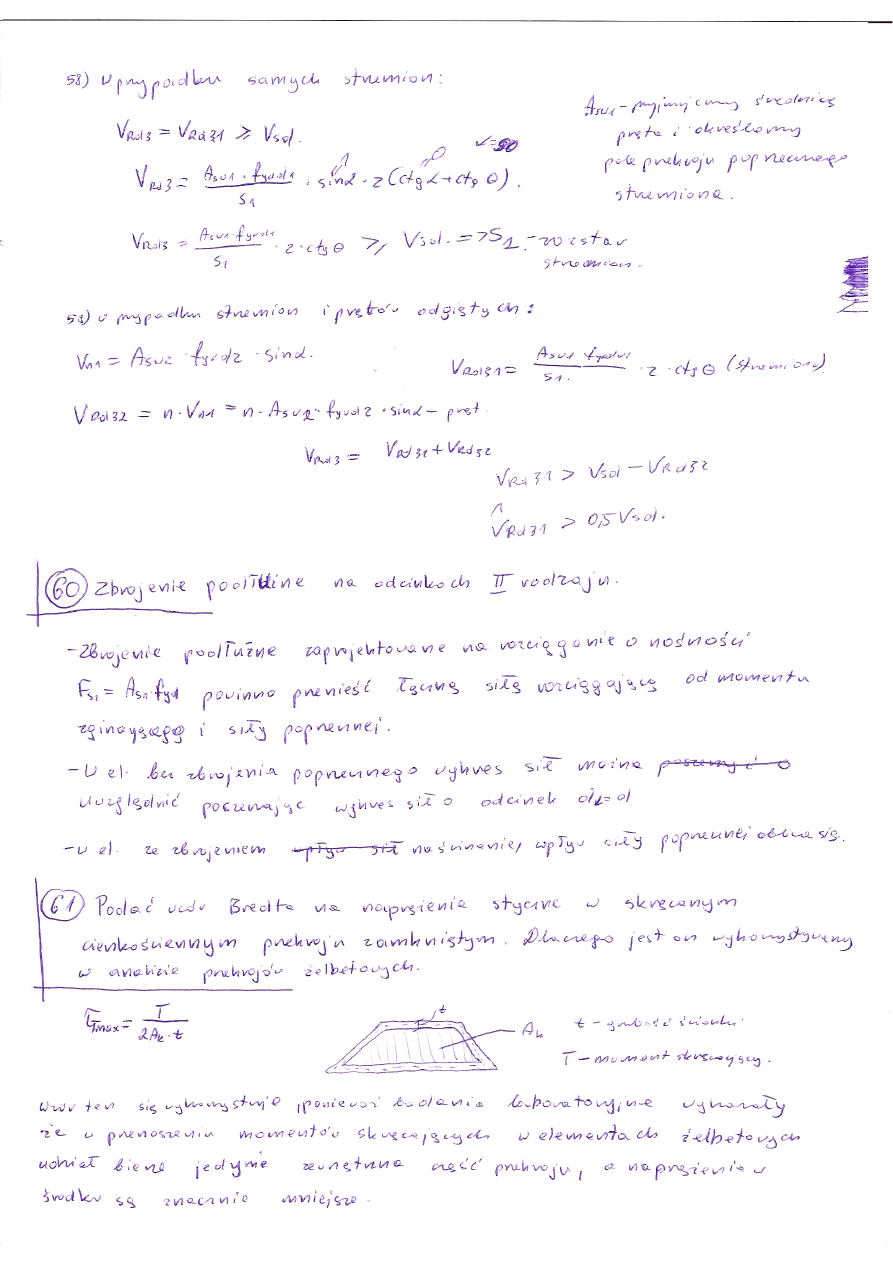 58) W przypadku samych strzemion:
Asw1 - przyjmujemy średnicę
pręta i określamy
pole przekroju poprzecznego
strzemiona.
VRd3 = VRd31 ≥ Vsd.
α=90
VRd3 = Asw1 · fywd1 / s1 · sinα · z (ctg α + ctg θ).
1
0
VRd3 = Asw1 · fywd1 / s1 · z · ctg θ ≥ Vsd. => S1 - rozstaw
strzemion.
59) w przypadku strzemion i prętów odgiętych:
Vn1 = Asw2 · fywd2 · sinα.
VRd31 = Asw1 · fywd1 / s1. · z · ctg θ (strzemiona)
VRd32 = n · Vn1 = n · Asw2 · fywd2 · sinα - pręt.
VRd3 = VRd31 + VRd32
VRd31 > Vsd - VRd32
^
VRd31 > 0,5 Vsd.
60 Zbrojenie podłużne na odcinkach II rodzaju.
- Zbrojenie podłużne zaprojektowane na rozciąganie o nośności
Fs1 = As1 · fyd powinno przenieść łączną siłę rozciągającą od momentu
zginającego i siły poprzecznej.
- W el. bez zbrojenia poprzecznego wykres sił można poszerzyć o
uwzględnić poszerzając wykres sił o odcinek al = d
- w el. ze zbrojeniem wpływ sił na ścinanie, wpływ siły poprzecznej oblicza się.
61 Podać wzór Bredta na naprężenia styczne w skręcanym
cienkościennym przekroju zamkniętym. Dlaczego jest on wykorzystywany
w analizie przekrojów żelbetowych.
τTmax = T / 2Ak · t
t
Ak
t - grubość ścianki
T - moment skręcający.
Wzór ten się wykorzystuje, ponieważ badania laboratoryjne wykazały
że w przenoszeniu momentów skręcających w elementach żelbetowych
udział bierze jedynie zewnętrzna część przekroju, a naprężenia w
środku są znacznie mniejsze.